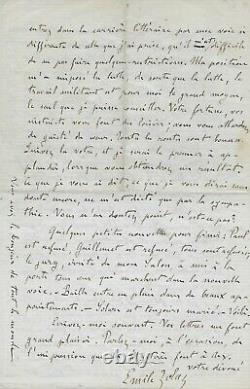 entrez dans la carrière littéraire par une voie si
différente de celle que j'ai prise, qu'il m'est difficile
de ne pas faire quelques restrictions. Ma position
m'a imposé la lutte, de sorte que la lutte, le
travail militant est le grand moyen,
le seul que je puisse conseiller. Votre fortune, vos
instincts vous font des loisirs; vous vous
de gaieté de cœur. Toute la route est bonne.
Suivez la votre, et je serai le premier à ap-
plaudir, lorsque vous obtiendrez un résultat.
ce que je vous ai dit, ce que je vous dirai sans
doute encore, ne m'est dicté que par la sympa-
thie. Vous n'en doutez point, n'est-ce pas?
Quelques petites nouvelles pour finir; Paul
est refusé, Guillemet est refusé, tous sont refusés;
le jury, irrité de mon Salon, a mis à la
porte tous ceux qui marchent dans la nouvelle
voie. - Baille entre en plein dans de beaux ap-
pointements. - Solari est toujours marié. - Voilà.
Ecrivez-moi souvent. Vos lettres me font
grand plaisir. Parlez-moi, à l'occasion, de
votre dévoué
Emile Zola
Vous avez le bonjour de tout le monde